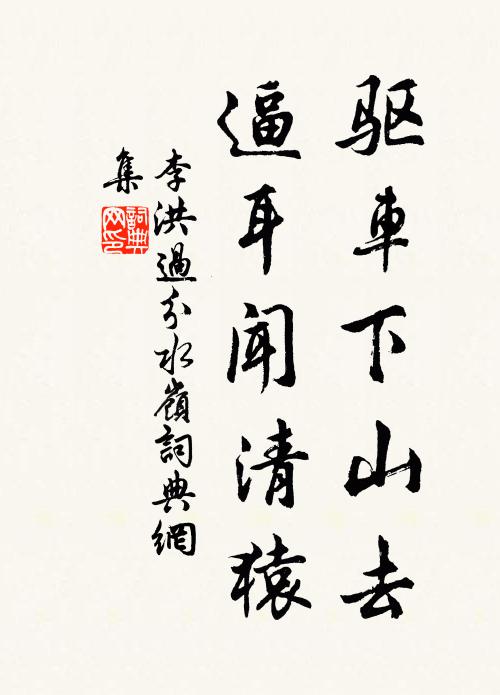 驱車下山去
逼耳闻清猿
李洪過分水嶺詞典網
集
詞典网印